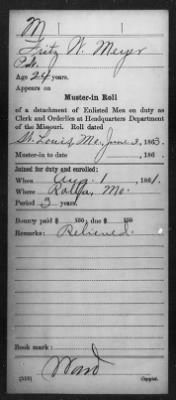 M
Fritz W. Meyer
Pvt.
Age 24 years.
Appears on
Muster-in Roll
of a detachment of Enlisted Men on duty as
Clerk and Orderlies at Headquarters Department
of the Missouri. Roll dated
St. Louis, Mo., June 3, 1863.
Muster-in to date , 186 .
Joined for duty and enrolled:
When Aug. 1, 1861.
Where Rolla, Mo.
Period 3 years.
Bounty paid $ 100; due $ 100
Remarks: Relieved.
Book mark:
Ward
Copyist.